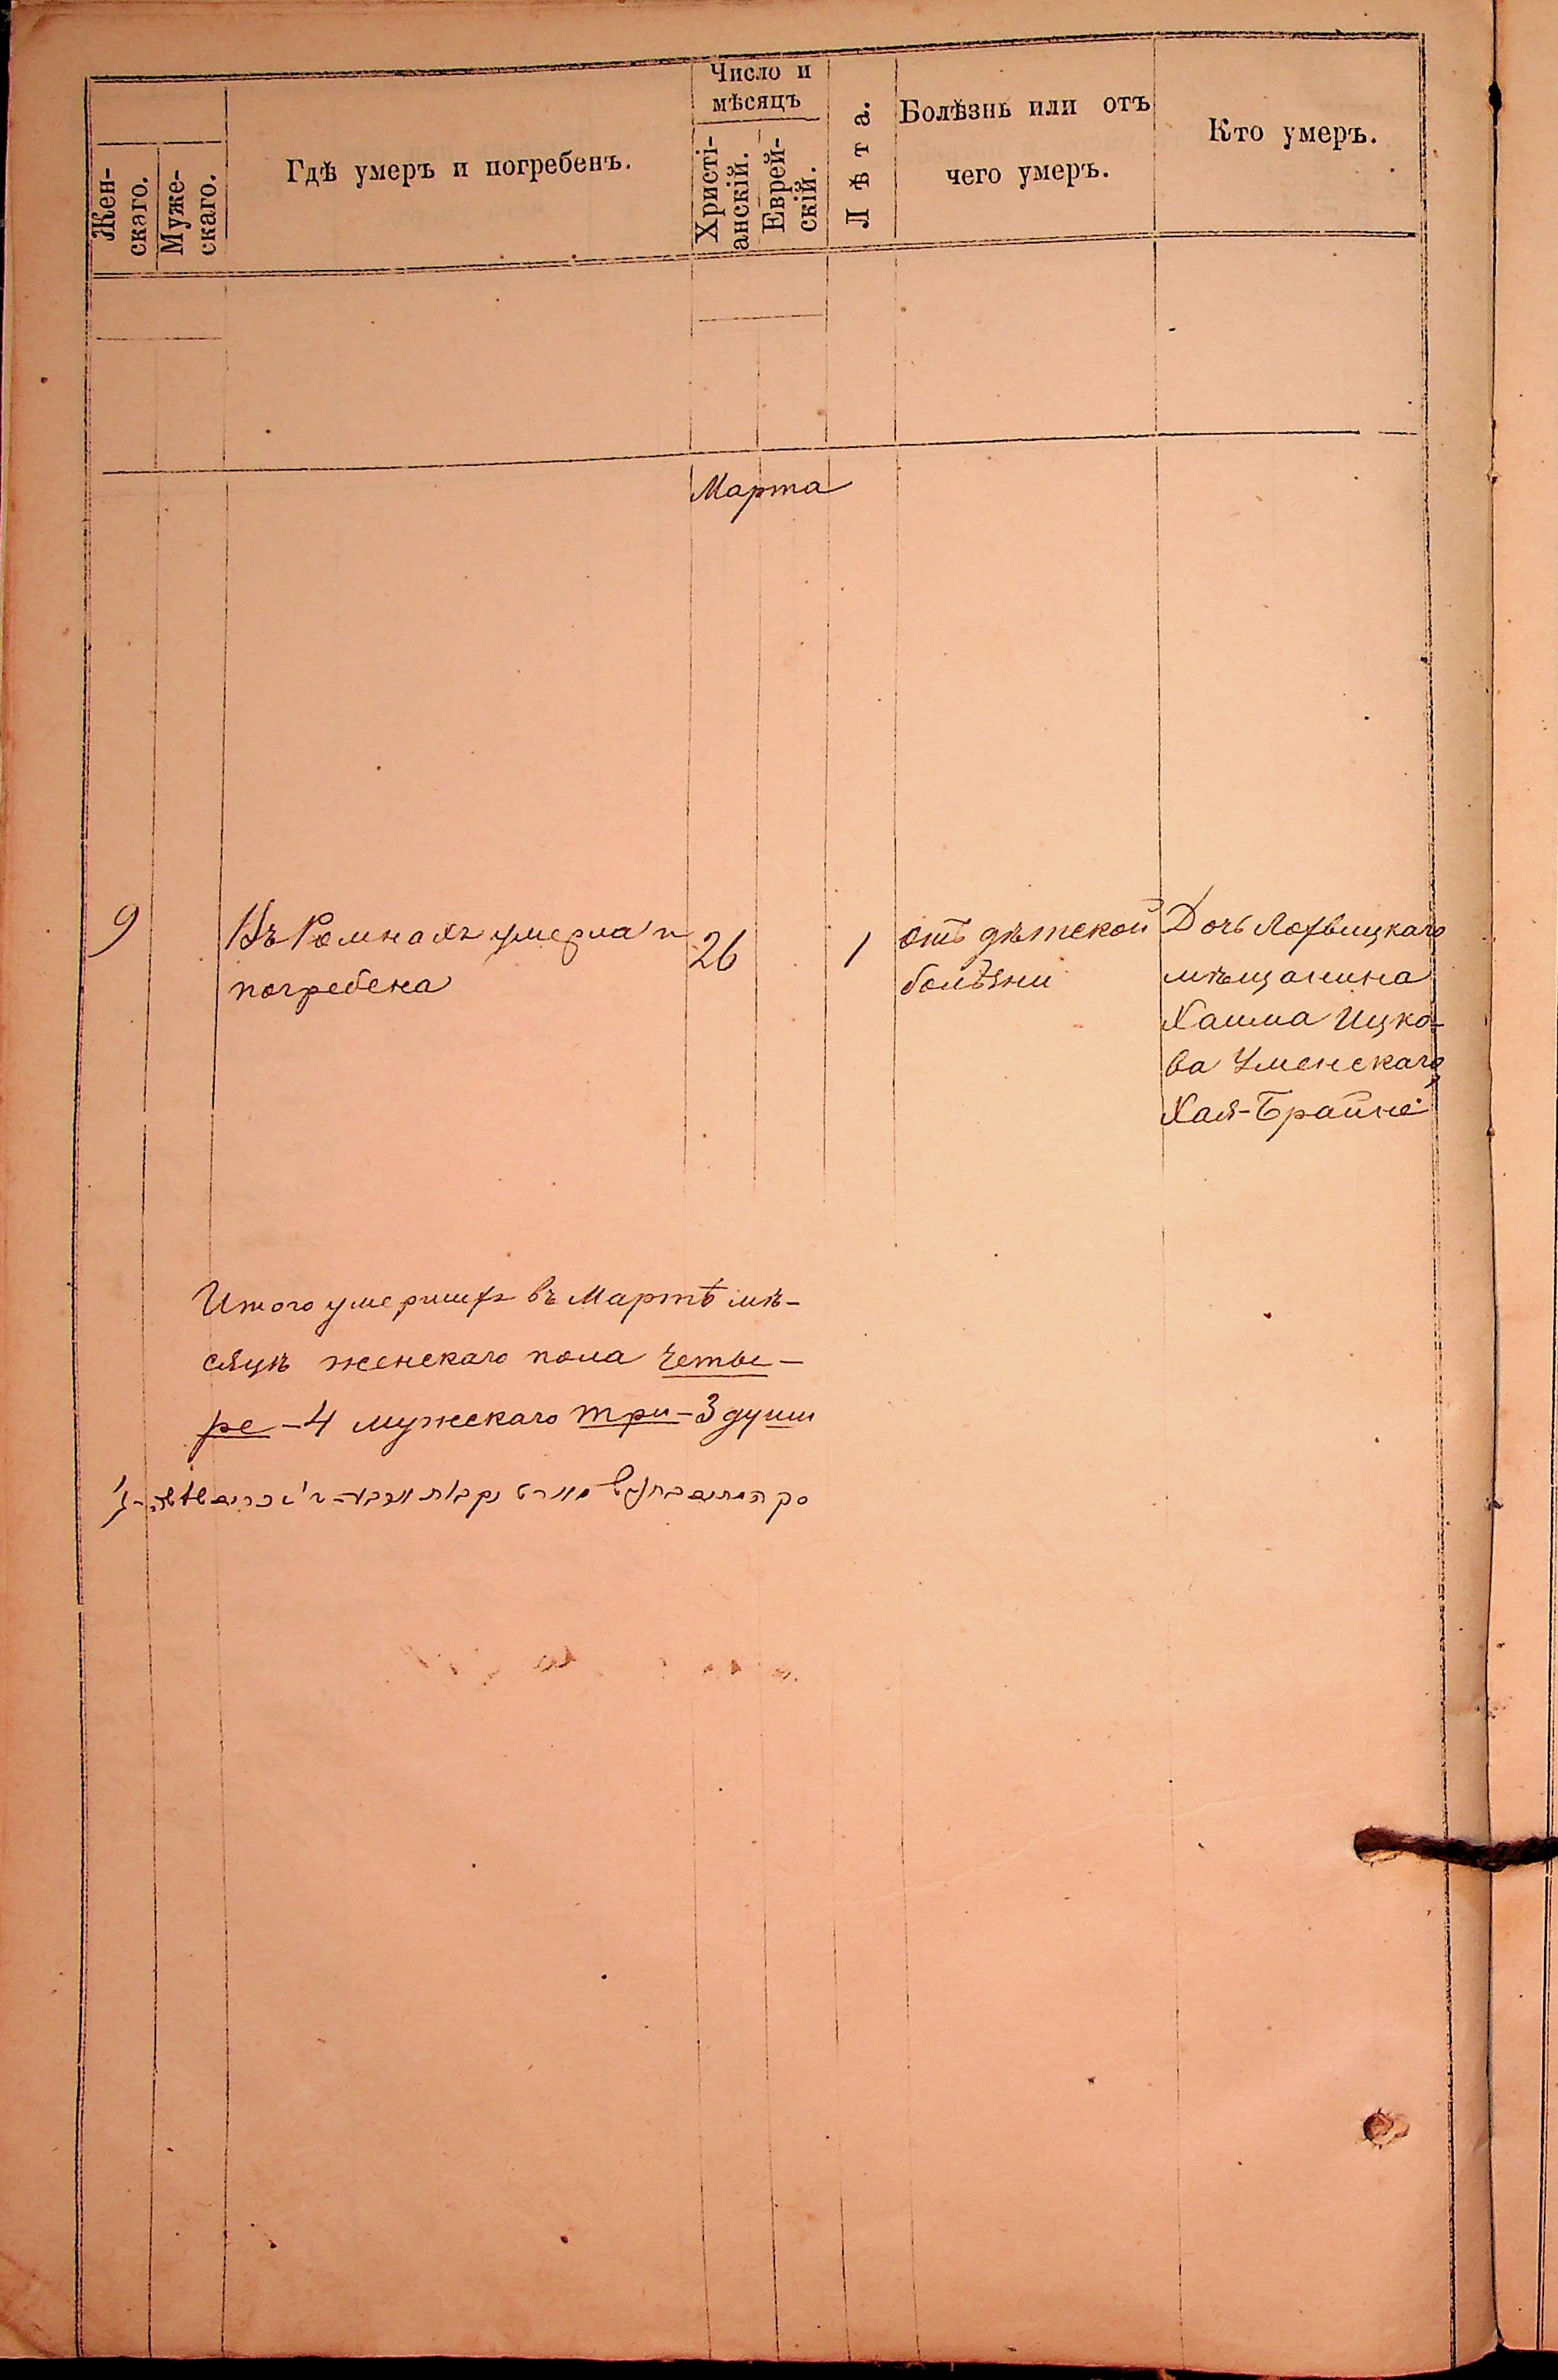 Жен-
скаго.
Муже-
скаго.
Гдѣ умеръ и погребенъ.
Число и
мѣсяцъ
Христі-
анскій.
Еврей-
скій.
Лѣта.
Болѣзнь или отъ
чего умеръ.
Кто умеръ.
Марта
9
Въ Ромнахъ умерла и
погребена
26
1
отъ дѣтской
болѣзни
Дочь Лохвицкаго
мѣщанина
Хаима Ицко-
ва Уменскаго
Хая-Брайне
Итого умершихъ въ Мартѣ мѣ-
сяцѣ женскаго пола четы-
ре - 4 мужскаго три - 3 души